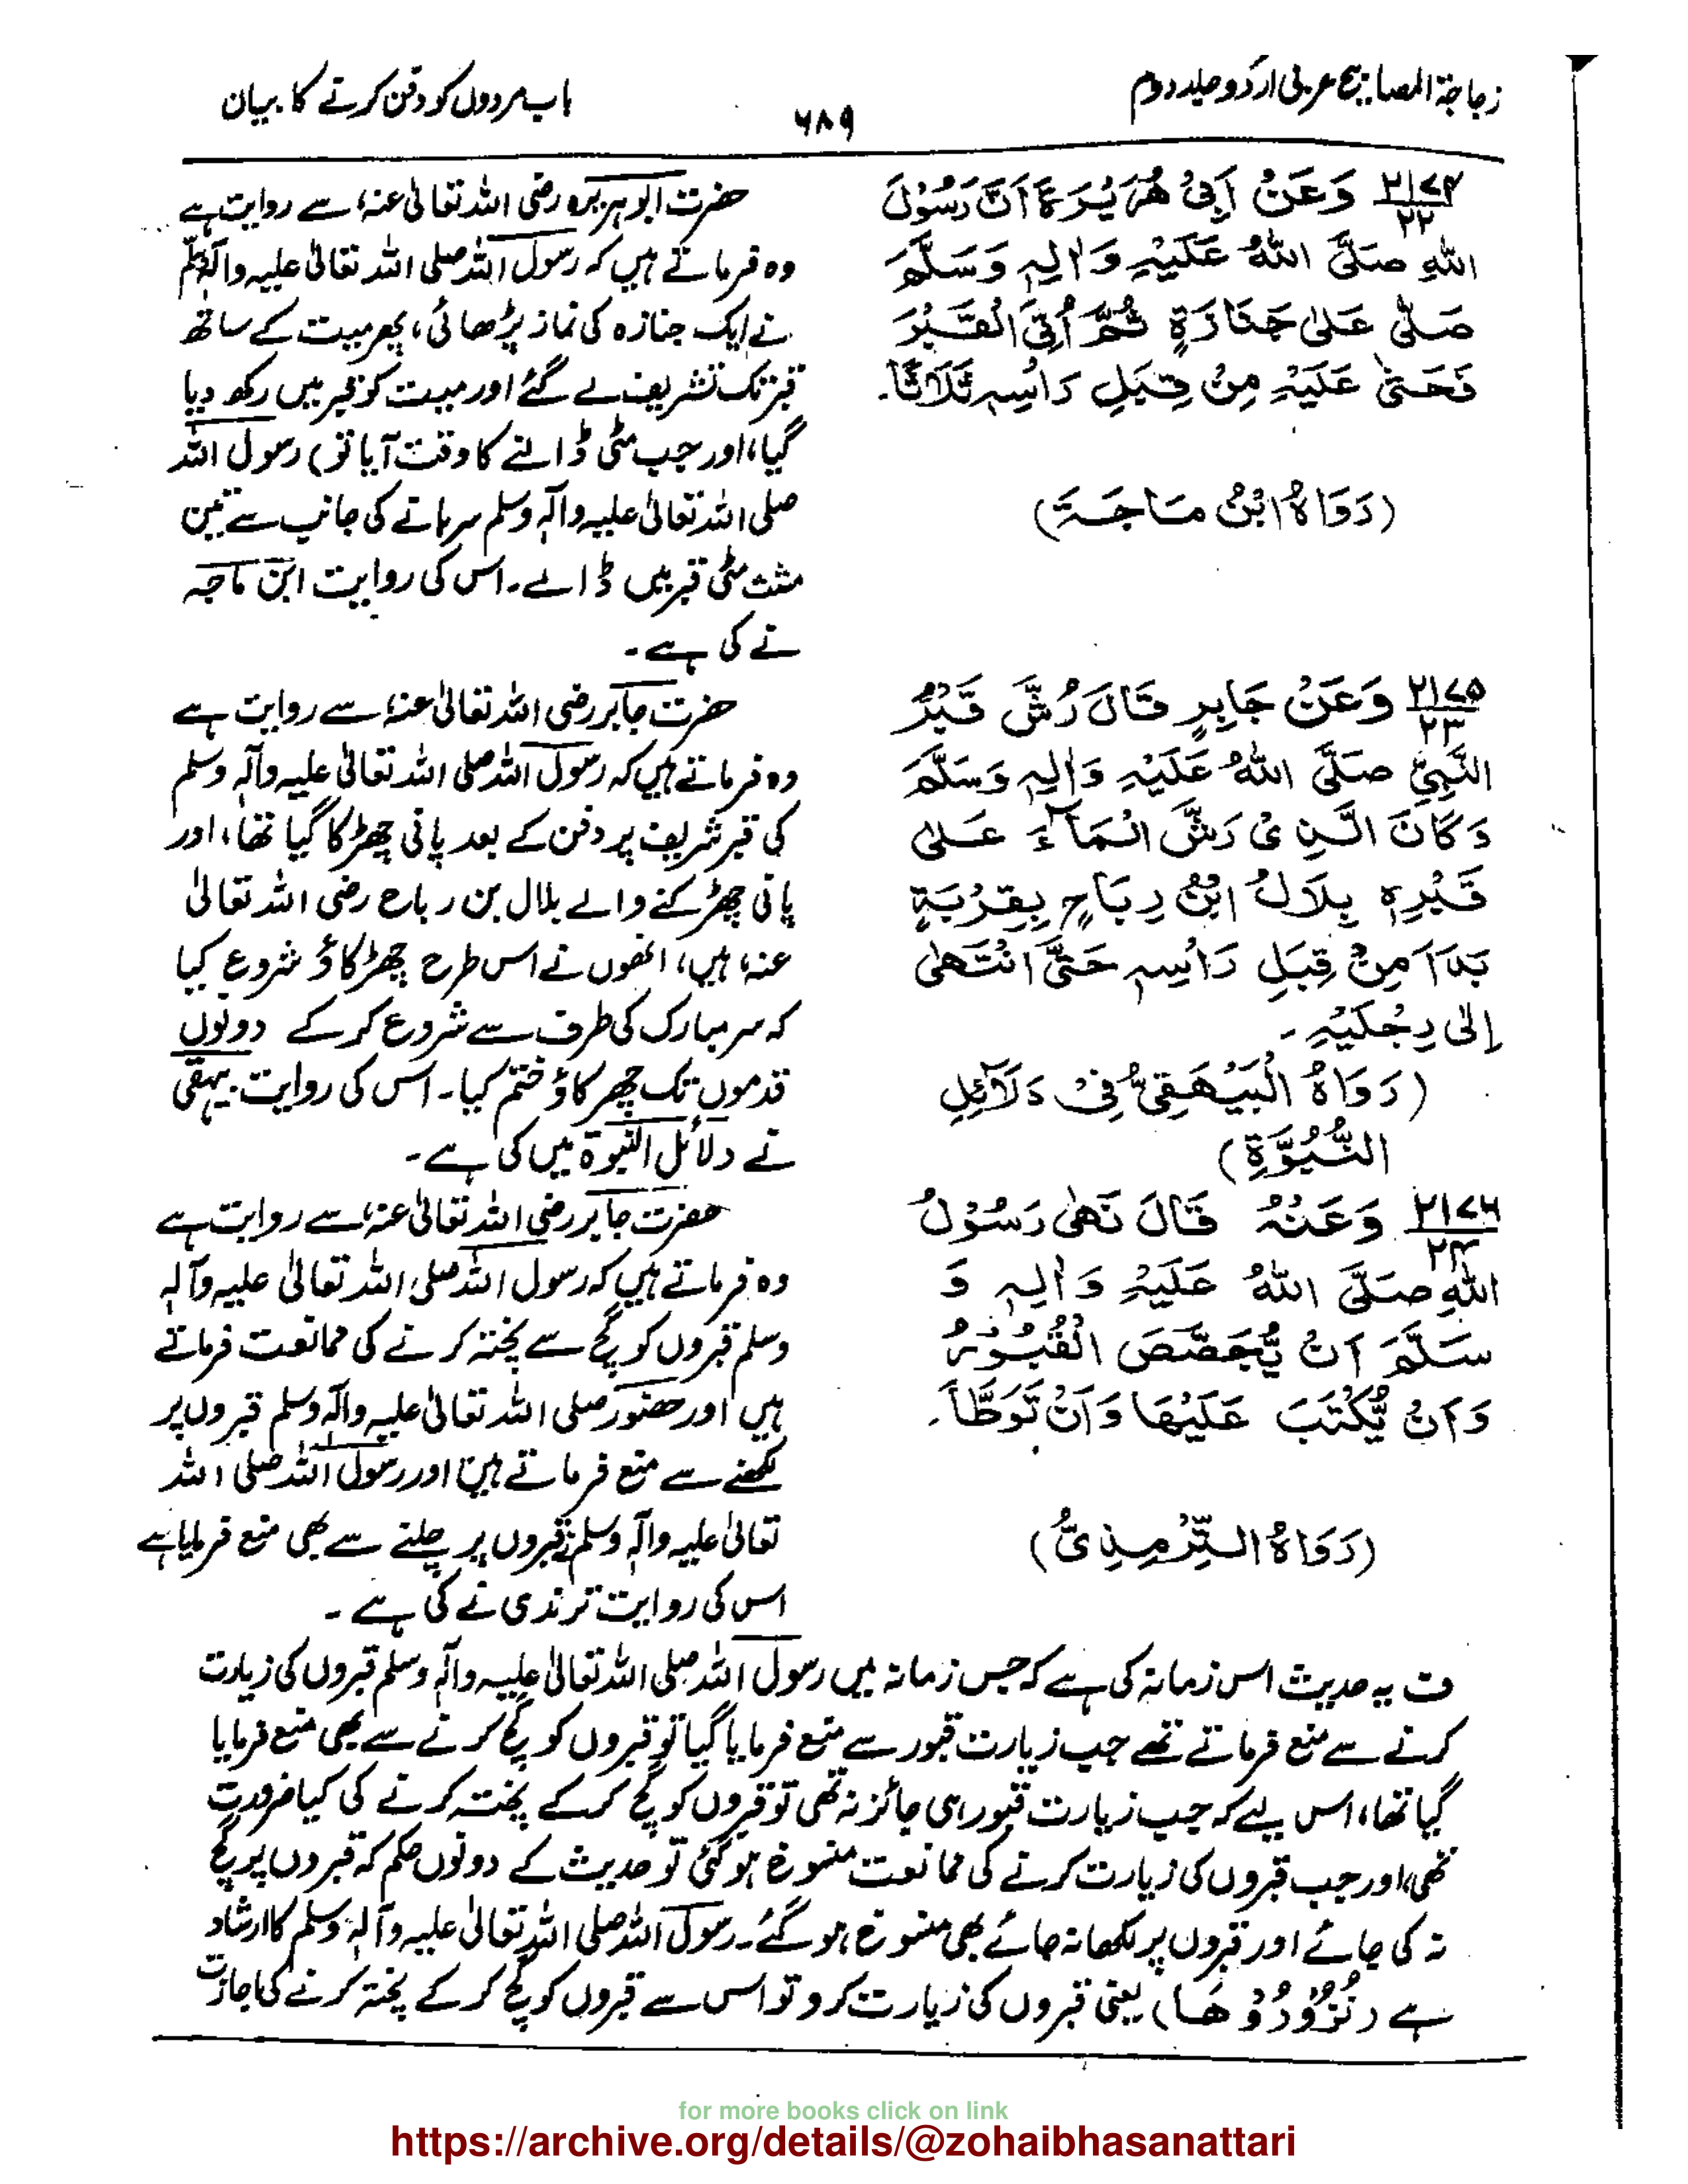 زجاجۃ المصابیح عربی اردو جلد دوم
۶۸۹
باب مردوں کو دفن کرنے کا بیان
۲۱۷۴/۲۲ وَعَنْ اَبِیْ هُرَیْرَةَ اَنَّ رَسُوْلَ
اللهِ صَلَّی اللهُ عَلَیْهِ وَاٰلِهٖ وَسَلَّمَ
صَلّٰی عَلٰی جَنَازَةٍ ثُمَّ اَتَی الْقَبْرَ
فَحَثٰی عَلَیْهِ مِنْ قِبَلِ رَاْسِهٖ ثَلَاثًا۔
(رَوَاهُ ابْنُ مَاجَةَ)
حضرت ابوہریرہ رضی اللہ تعالیٰ عنہ، سے روایت ہے
وہ فرماتے ہیں کہ رسول اللہ صلی اللہ تعالیٰ علیہ وآلہٖ وسلم
نے ایک جنازہ کی نماز پڑھائی، پھر میت کے ساتھ
قبر تک تشریف لے گئے اور میت کو قبر میں رکھ دیا
گیا، اور جب مٹی ڈالنے کا وقت آیا تو) رسول اللہ
صلی اللہ تعالیٰ علیہ وآلہٖ وسلم سرہانے کی جانب سے تین
مشت مٹی قبر میں ڈالے۔ اس کی روایت ابن ماجہ
نے کی ہے۔
۲۱۷۵/۲۳ وَعَنْ جَابِرٍ قَالَ رُشَّ قَبْرُ
النَّبِیِّ صَلَّی اللهُ عَلَیْهِ وَاٰلِهٖ وَسَلَّمَ
وَكَانَ الَّذِیْ رَشَّ الْمَآءَ عَلٰی
قَبْرِهٖ بِلَالُ ابْنُ رِبَاحٍ بِقِرْبَةٍ
بَدَاَ مِنْ قِبَلِ رَاْسِهٖ حَتَّی انْتَهٰی
اِلٰی رِجْلَیْهِ۔
(رَوَاهُ الْبَیْهَقِیُّ فِیْ دَلَآئِلِ
النُّبُوَّةِ)
حضرت جابر رضی اللہ تعالیٰ عنہ، سے روایت ہے
وہ فرماتے ہیں کہ رسول اللہ صلی اللہ تعالیٰ علیہ وآلہٖ وسلم
کی قبر شریف پر دفن کے بعد پانی چھڑکا گیا تھا، اور
پانی چھڑکنے والے بلال بن رباح رضی اللہ تعالیٰ
عنہ، ہیں، انھوں نے اس طرح چھڑکاؤ شروع کیا
کہ سر مبارک کی طرف سے شروع کر کے دونوں
قدموں تک چھڑکاؤ ختم کیا۔ اس کی روایت بیہقی
نے دلائل النبوۃ میں کی ہے۔
۲۱۷۶/۲۴ وَعَنْهُ قَالَ نَهٰی رَسُوْلُ
اللهِ صَلَّی اللهُ عَلَیْهِ وَاٰلِهٖ وَ
سَلَّمَ اَنْ یُّجَصَّصَ الْقُبُوْرُ
وَاَنْ یُّكْتَبَ عَلَیْهَا وَاَنْ تُوَطَّاَ۔
(رَوَاهُ التِّرْمِذِیُّ)
حضرت جابر رضی اللہ تعالیٰ عنہ، سے روایت ہے
وہ فرماتے ہیں کہ رسول اللہ صلی اللہ تعالیٰ علیہ وآلہٖ
وسلم قبروں کو گچ سے پختہ کرنے کی ممانعت فرماتے
ہیں اور حضور صلی اللہ تعالیٰ علیہ وآلہٖ وسلم قبروں پر
لکھنے سے منع فرماتے ہیں اور رسول اللہ صلی اللہ
تعالیٰ علیہ وآلہٖ وسلم نے قبروں پر چلنے سے بھی منع فرمایا ہے
اس کی روایت ترمذی نے کی ہے۔
ف یہ حدیث اس زمانہ کی ہے کہ جس زمانہ میں رسول اللہ صلی اللہ تعالیٰ علیہ وآلہٖ وسلم قبروں کی زیارت
کرنے سے منع فرماتے تھے جب زیارت قبور سے منع فرمایا گیا تو قبروں کو گچ کرنے سے بھی منع فرمایا
گیا تھا، اس لیے کہ جب زیارت قبور ہی جائز نہ تھی تو قبروں کو گچ کر کے پختہ کرنے کی کیا ضرورت
تھی، اور جب قبروں کی زیارت کرنے کی ممانعت منسوخ ہو گئی تو حدیث کے دونوں حکم کہ قبروں پر گچ
نہ کی جائے اور قبروں پر لکھا نہ جائے بھی منسوخ ہو گئے۔ رسول اللہ صلی اللہ تعالیٰ علیہ وآلہٖ وسلم کا ارشاد
ہے (نُزُوْرُوْهَا) یعنی قبروں کی زیارت کرو تو اس سے قبروں کو گچ کر کے پختہ کرنے کی اجازت
for more books click on link
https://archive.org/details/@zohaibhasanattari